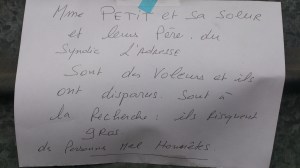 Mme PETIT et sa soeur
et leurs Père. du
Syndic L'Adresse
sont des voleurs et ils
ont disparus sont à
la Recherche : ils risquent
gros
de Personne Mal Honnètes